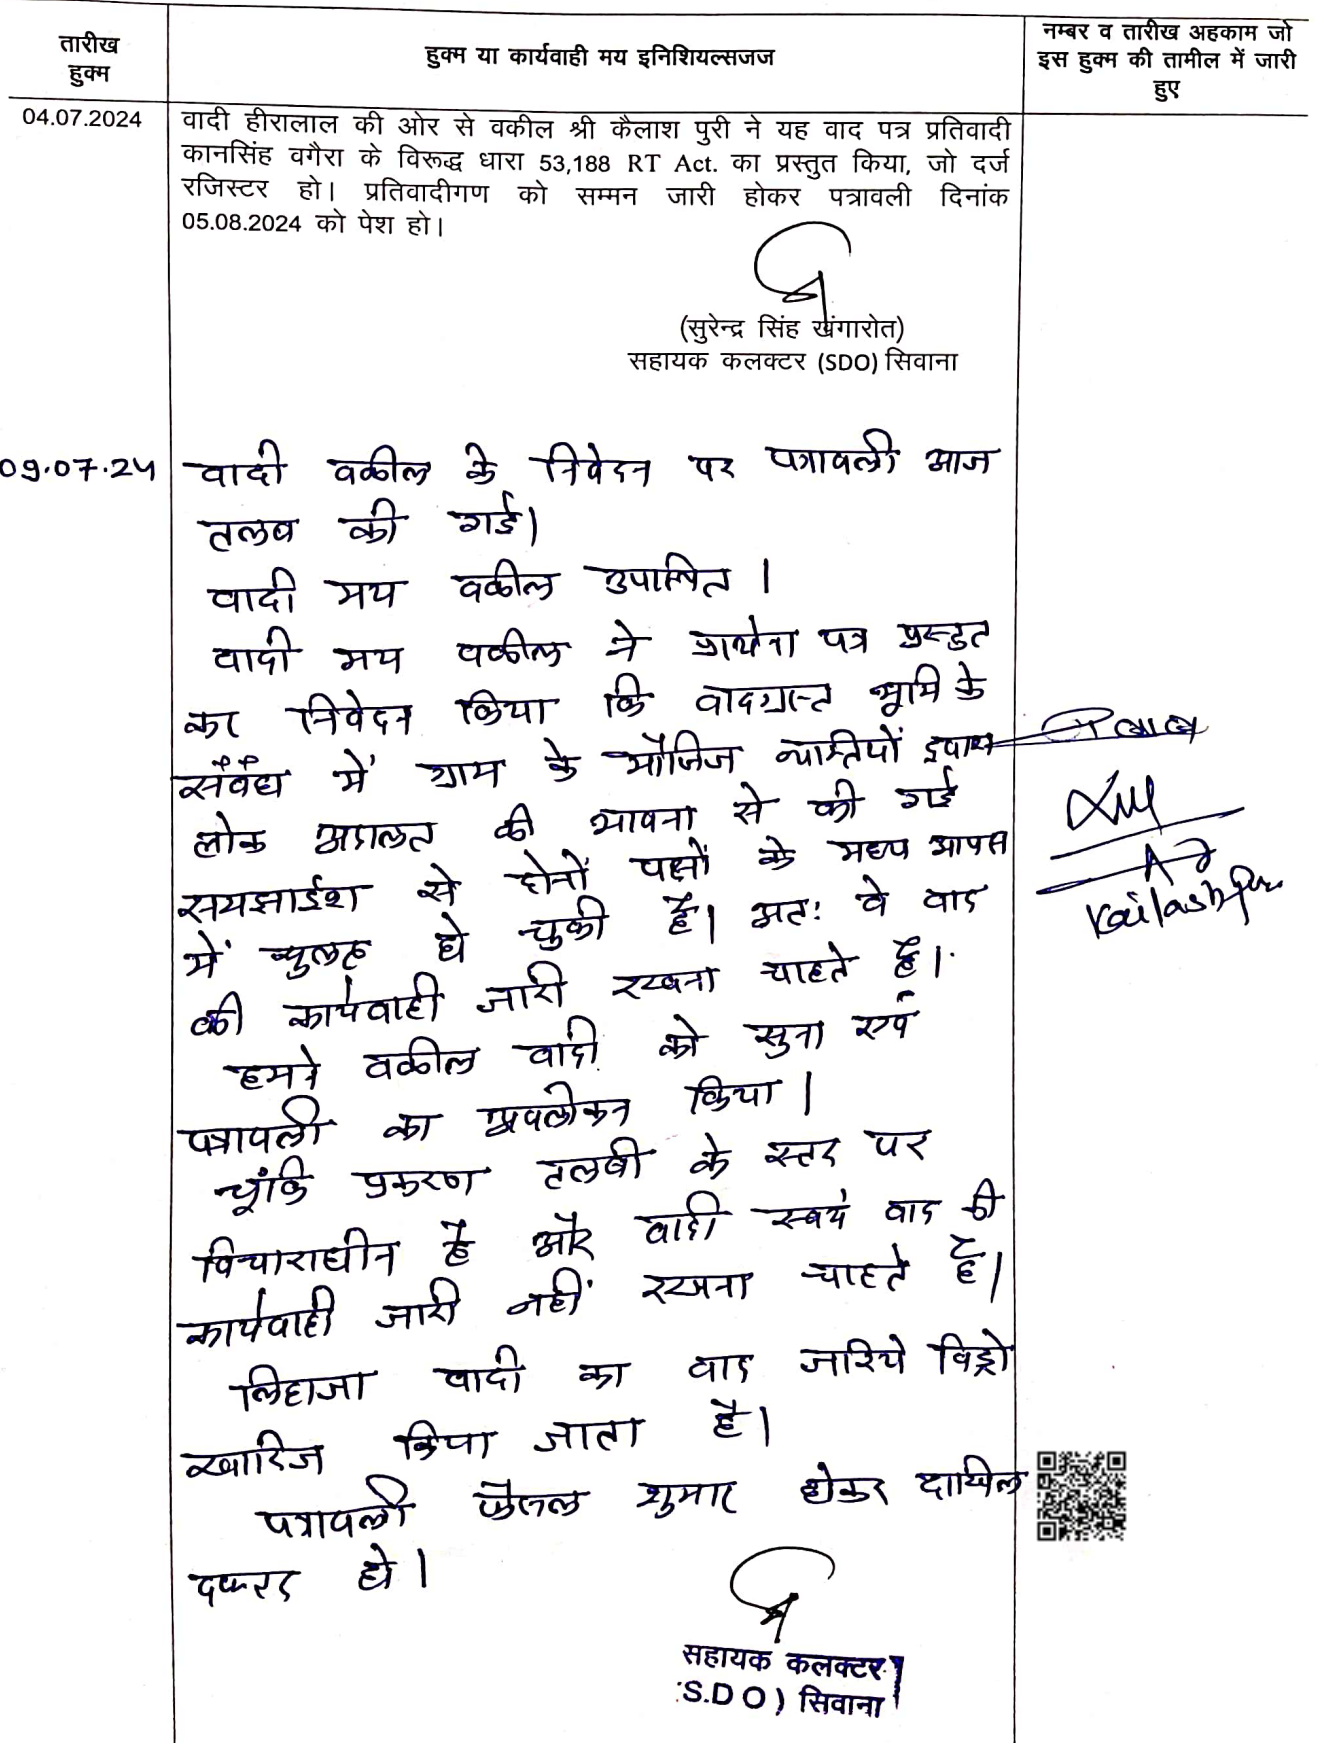 तारीख
हुक्म
हुक्म या कार्यवाही मय इनिशियल्सजज
नम्बर व तारीख अहकाम जो
इस हुक्म की तामील में जारी
हुए
04.07.2024
वादी हीरालाल की ओर से वकील श्री कैलाश पुरी ने यह वाद पत्र प्रतिवादी
कानसिंह वगैरा के विरूद्ध धारा 53,188 RT Act. का प्रस्तुत किया, जो दर्ज
रजिस्टर हो। प्रतिवादीगण को सम्मन जारी होकर पत्रावली दिनांक
05.08.2024 को पेश हो।
(सुरेन्द्र सिंह खंगारोत)
सहायक कलक्टर (SDO) सिवाना
09.07.24
वादी वकील के निवेदन पर पत्रावली आज
तलब की गई।
वादी मय वकील उपस्थित।
वादी मय वकील ने प्रार्थना पत्र प्रस्तुत
कर निवेदन किया कि वादग्रस्त भूमि के
संबंध में ग्राम के मौजिज व्यक्तियों द्वारा
लोक अदालत की भावना से की गई
समझाईश से दोनों पक्षों के मध्य आपस
में सुलह हो चुकी है। अतः वे वाद
की कार्यवाही जारी रखना चाहते है।
हमने वकील वादी को सुना एवं
पत्रावली का अवलोकन किया।
चूंकि प्रकरण तलबी के स्तर पर
विचाराधीन है और वादी स्वयं वाद की
कार्यवाही जारी नहीं रखना चाहते है।
लिहाजा वादी का वाद जरिये विड्रो
खारिज किया जाता है।
पत्रावली फैसल शुमार होकर दाखिल
दफ्तर हो।
Kailash Puri
सहायक कलक्टर
S.D O) सिवाना